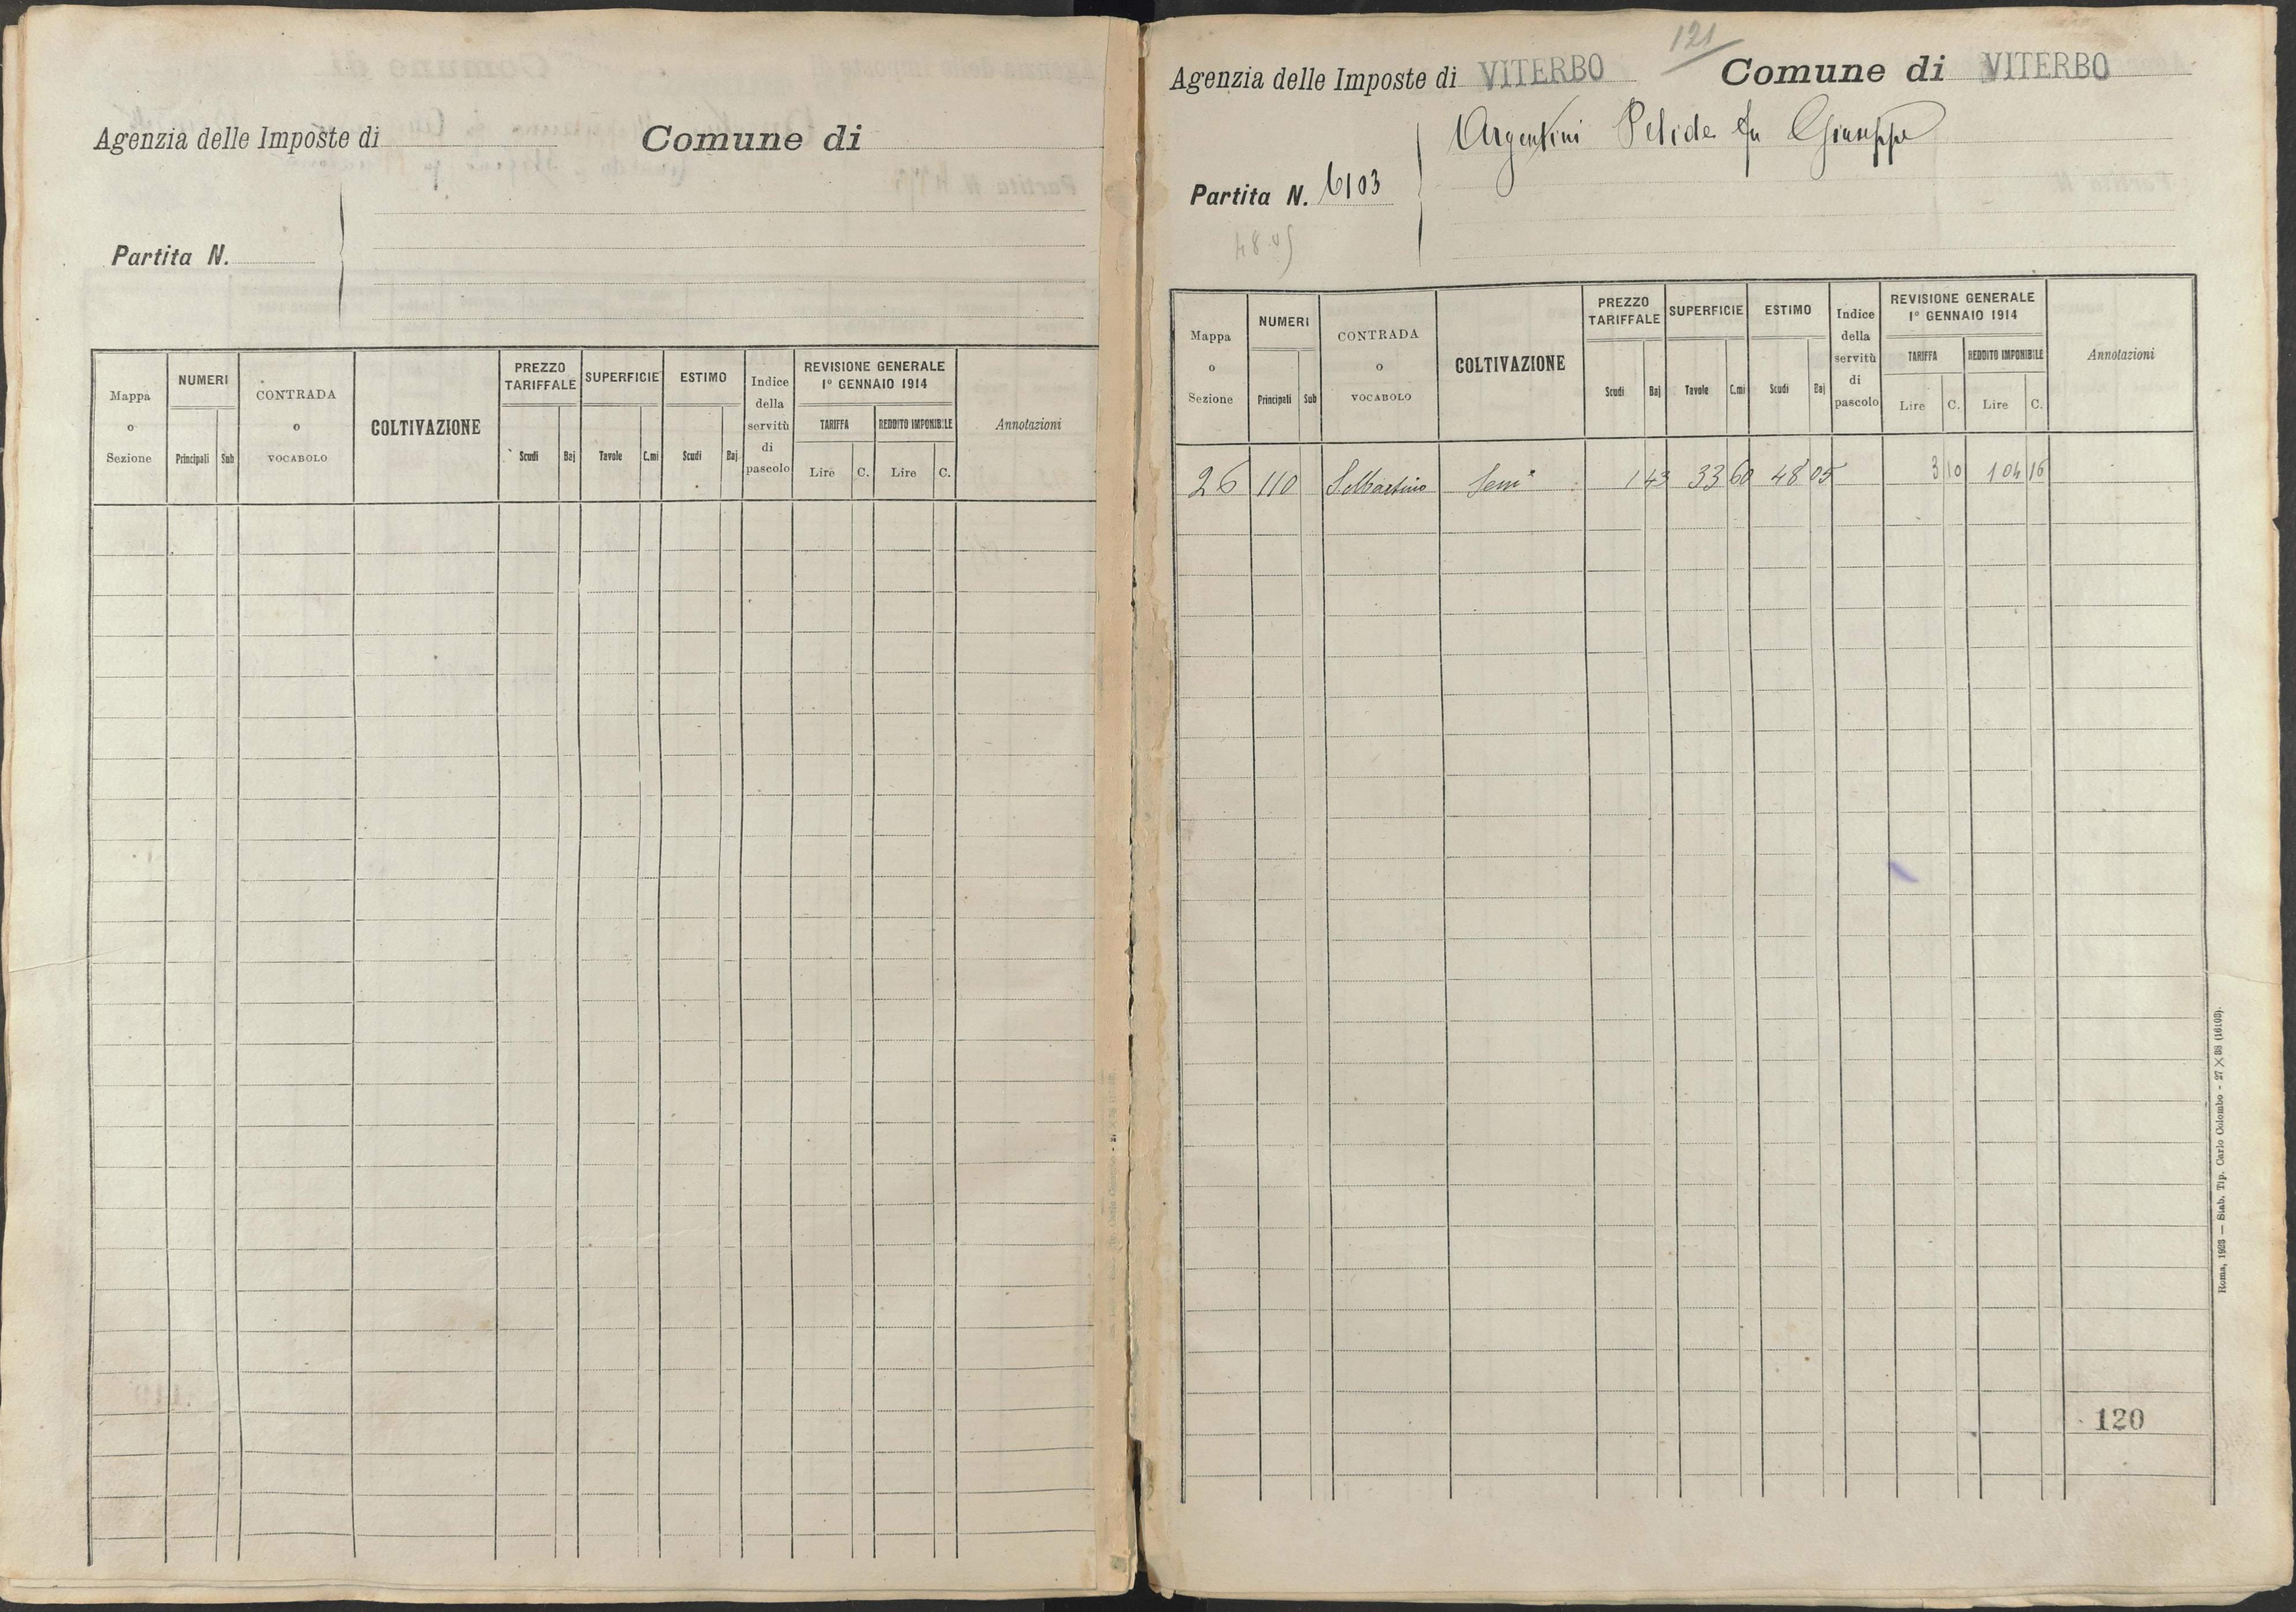 Agenzia delle Imposte di Comune di
Partita N.
Mappa o Sezione NUMERI Principali Sub CONTRADA o VOCABOLO COLTIVAZIONE PREZZO TARIFFALE Scudi Baj SUPERFICIE Tavole C.mi ESTIMO Scudi Baj Indice della servitù di pascolo REVISIONE GENERALE 1° GENNAIO 1914 TARIFFA Lire C. REDDITO IMPONIBILE Lire C. Annotazioni
121
Agenzia delle Imposte di VITERBO Comune di VITERBO
Argentini Pelide fu Giuseppe
Partita N. 6103
48.05
Mappa o Sezione NUMERI Principali Sub CONTRADA o VOCABOLO COLTIVAZIONE PREZZO TARIFFALE Scudi Baj SUPERFICIE Tavole C.mi ESTIMO Scudi Baj Indice della servitù di pascolo REVISIONE GENERALE 1° GENNAIO 1914 TARIFFA Lire C. REDDITO IMPONIBILE Lire C. Annotazioni
26 110 S. Martino Semi° 1 43 33 60 48 05 3 10 104 16
120
Roma, 1923 — Stab. Tip. Carlo Colombo - 27 × 38 (16103).